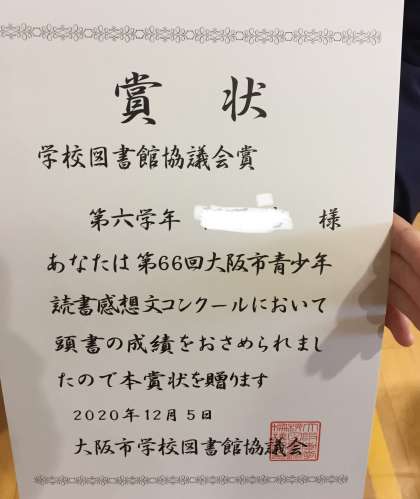 賞状
学校図書館協議会賞
第六学年 様
あなたは第66回大阪市青少年
読書感想文コンクールにおいて
頭書の成績をおさめられまし
たので本賞状を贈ります
2020年12月5日
大阪市学校図書館協議会